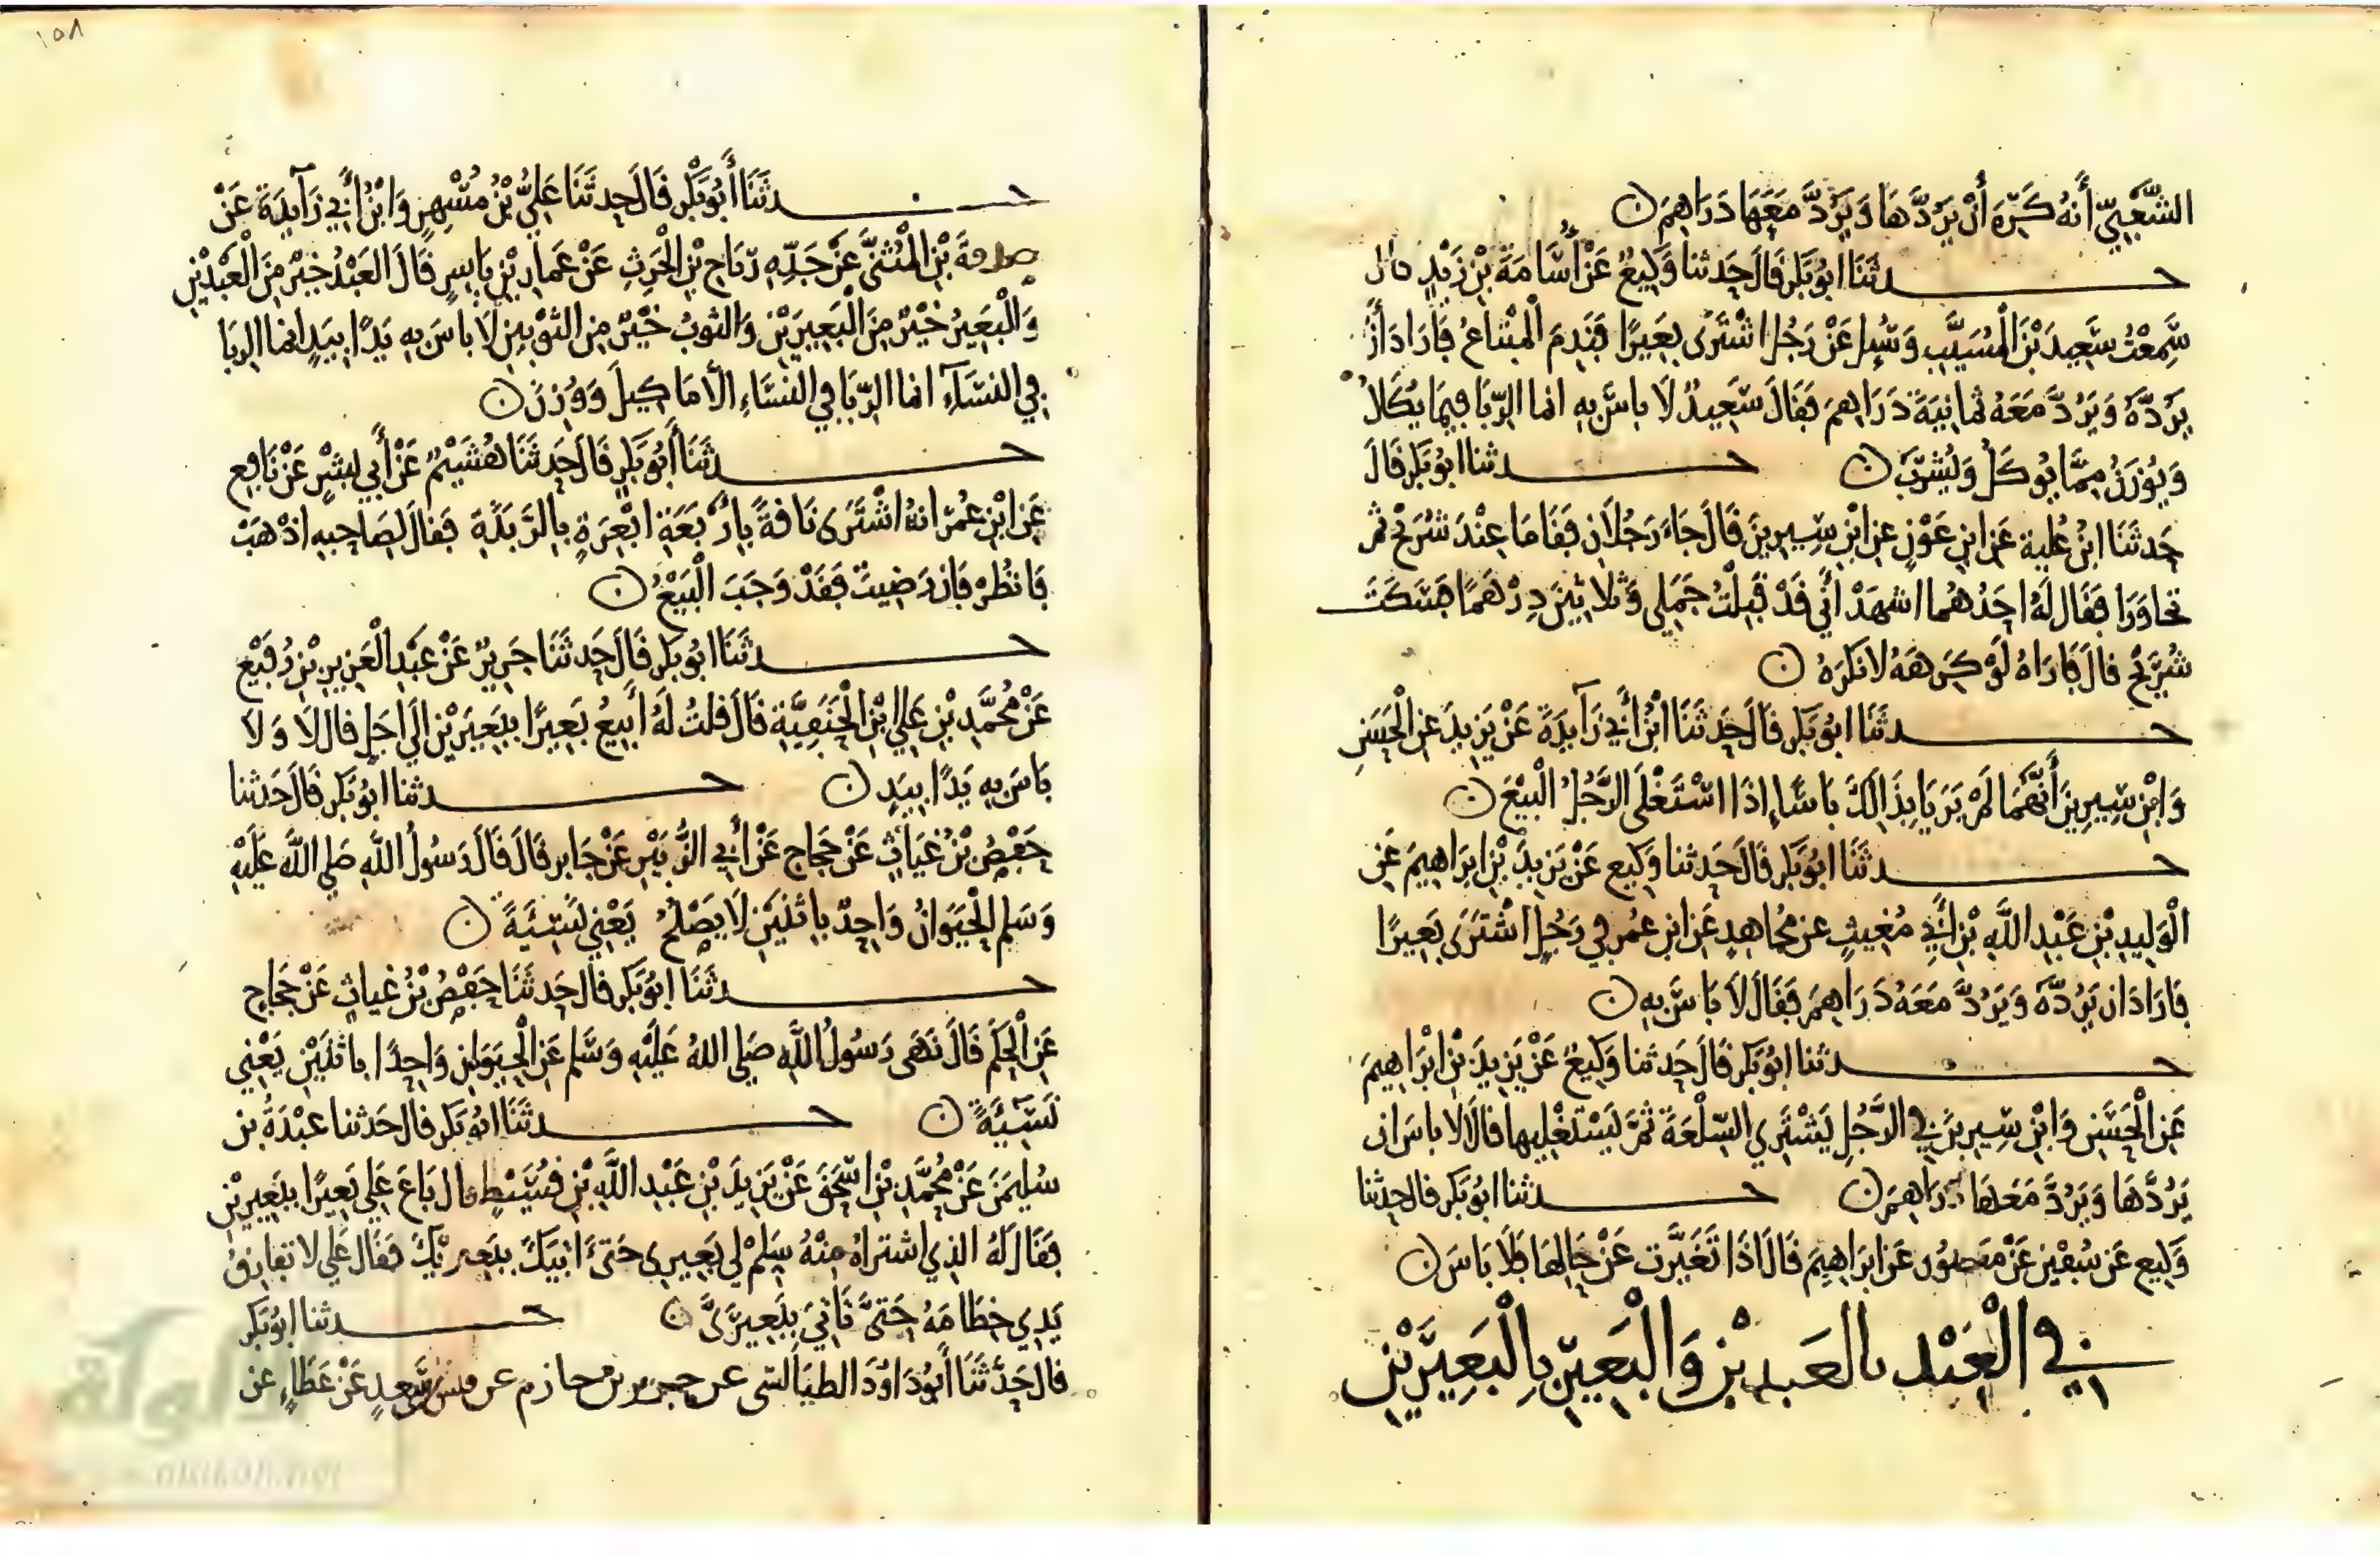 الشَّعْبِيِّ أَنَّهُ كَرِهَ أَنْ يَرُدَّهَا وَيَرُدَّ مَعَهَا دَرَاهِمَ ن
حدثَنَا ابُو بَكْرٍ قَالَ حَدثنا وَكِيعٌ عَنْ أُسَامَةَ بْنِ زَيْدٍ قال
سَمِعْتُ سَعِيدَ بْنَ الْمُسَيَّبِ وَسُئِلَ عَنْ رَجُلٍ اشْتَرَى بَعِيرًا فَنَدِمَ الْمُبْتَاعُ فَارَادَ أَنْ
يَرُدَّهُ وَيَرُدَّ مَعَهُ ثمانِيَةَ دَرَاهِمَ فَقَالَ سَعِيدٌ لَا بَاسَ بِهِ انما الرِّبَا فِيمَا يُكَالُ
وَيُوزَنُ مِمَّا يُوكَلُ وَيُشْرَبُ ن حدثنا ابُو بَكْرٍ قَالَ
حَدثَنَا ابْنُ عُلَيةَ عَنِ ابْنِ عَوْنٍ عَنِ ابْنِ سِيرِينَ قَالَ جَاءَ رَجُلَانِ فَقَامَا عِنْدَ شُرَيْحٍ ثم
تحاوَرَا فَقَالَ لَهُ احَدُهُمَا اشهَدْ أَنِّي قَدْ قَبِلْتُ جَمَلِي وَثَلَاثِينَ دِرْهَمًا فَسَكَتَ
شُرَيْحٌ قالَ فَارَاهُ لَوْ كَرِهَهُ لَانكَرَهُ ن
حدثَنَا ابُو بَكْرٍ قَالَ حَدثَنَا ابْنُ أَبِي زَآيِدَةَ عَنْ يَزِيدَ عَنِ الْحَسَنِ
وَابْنِ سِيرِينَ أَنَّهُمَا لَمْ يَرَيَا بِذَالِكَ بَاسًا إِذَا اسْتَغْلَى الرَّجُلُ الْبَيْعَ ن
حدثَنَا ابُو بَكْرٍ قَالَ حَدثنا وَكِيع عَنْ يَزِيدَ بْنِ ابرَاهِيمَ عَنِ
الْوَلِيدِ بْنِ عَبْدِ اللَّهِ بْنِ أَبِي مُغِيثٍ عن مُجَاهِدٍ عَنِ ابنِ عُمَر فِي رَجُلٍ اشْتَرَى بَعِيرًا
فَارَادَ ان يَرُدَّهُ وَيَرُدَّ مَعَهُ دَرَاهِمَ فَقَالَ لَا بَاسَ بِهِ ن
حدثنا ابُو بَكْرٍ قَالَ حَدثنا وَكِيعٌ عَنْ يَزِيدَ بْنِ ابْرَاهِيمَ
عَنِ الْحَسَنِ وَابْنِ سِيرِينَ فِي الرَّجُلِ يَشْتَرِي السِّلْعَةَ ثُمَّ يَسْتَغْلِيهَا قَالَا لا باسَ ان
يَرُدَّهَا وَيَرُدَّ مَعَهَا دَرَاهِمَ ن حدثنا ابُو بَكْرٍ قالَ حدثنا
وَكِيع عَن سُفْيَن عَنْ مَنصُورٍ عَنِ ابرَاهِيمَ قَالَ اذَا تَغَيَّرَت عَنْ حَالِهَا فَلَا بَاسَ ن
فِي الْعَبْدِ بالعَبدَيْنِ وَالْبَعِيرِ بِالْبَعِيرَيْنِ
١٥٨
حدثَنَا أَبُو بَكْرٍ قَالَ حَدثَنَا عَلِيُّ بْنُ مُسْهِرٍ وَابْنُ أَبِي زَآيِدَةَ عَنْ
صدقةَ بْنِ الْمُثَنَّى عَنْ جَدِّهِ رِيَاحِ بْنِ الْحَرِثِ عَنْ عَمَارِ بْنِ يَاسِرٍ قَالَ الْعَبْدُ خَيْرٌ مِنَ الْعَبْدَيْنِ
وَالْبَعِيرُ خَيْرٌ مِنَ الْبَعِيرَيْنِ وَالثوبُ خَيْرٌ مِنَ الثوْبَيْنِ لَا باسَ بِهِ يَدًا بِيَدٍ انما الرِبَا
فِي النَسَآءِ انما الرِّبَا فِي النَسَاءِ الَّا مَا كِيلَ وَوُزِنَ ن
حدثَنَا أَبُو بَكْرٍ قَالَ حَدثَنَا هُشَيْمٌ عَنْ أَبِي بِشْرٍ عَنْ نَافِعٍ
عَنِ ابْنِ عُمَرَ انهُ اشْتَرَى نَاقَةً بِارْبَعَةِ ابْعِرَةٍ بِالرَّبَذَةِ فَقالَ لِصَاحِبِهِ اذْهَبْ
فَانظُرْ فَإن رَضِيتَ فَقَدْ وَجَبَ الْبَيْعُ ن
حدثَنَا ابُو بَكرٍ قَالَ حَدثَنَا جَرِيرٌ عَنْ عَبْدِ الْعَزِيزِ بْنِ رُفَيْعٍ
عَنْ مُحَمَّدِ بْنِ عَلِيٍّ ابْنِ الْحَنَفِيَّةِ قَالَ قلتُ لَهُ أَبِيعُ بَعِيرًا بِبَعِيرَيْنِ الَى اجَلٍ قال لَا وَلَا
بَاسَ بِهِ يَدًا بِيَدٍ ن حدثنا ابُو بَكْرٍ قَالَ حَدثنا
حَفْصُ بْنُ غِيَاثٍ عَنْ حَجَاجٍ عَنْ أَبِي الزُّبَيْرِ عَنْ جَابِرٍ قَالَ قَالَ رَسُولُ اللَّهِ صَلى اللَّهُ عَلَيْهِ
وَسَلم الْحَيَوَانُ وَاحِدٌ بِاثنَيْنِ لَا يَصْلُحُ يَعْنِي نَسِيَّةً ن
حدثَنَا ابُو بَكْرٍ قال حَدثَنَا حَفْصُ بْنُ غيَاثٍ عَنْ حَجَاجٍ
عَنِ الْحَكَمِ قَالَ نَهَى رَسُولُ اللَّهِ صَلى اللهُ عَلَيْهِ وَسَّلم عَنِ الْحَيَوَانِ وَاحِدًا بِاثنَيْنِ يَعْنِي
نَسِيَّةً ن حدثَنَا ابُو بَكرٍ قالَ حَدثنا عَبْدَةُ بن
سُلَيمَنَ عَنْ مُحَمَّدِ بْنِ اسْحَقَ عَنْ يَزِيدَ بْنِ عَبْدِ اللَّهِ بْنِ قُسَيْطٍ قال بَاعَ عَلِي بَعِيرًا بِبَعِيرَيْنِ
فَقَالَ لَهُ الذِي اشتراهُ مِنْهُ سَلِمْ لِي بَعِيرِى حَتَّى اتِيَكَ بِبَعِيرَيْكَ فَقَالَ عَلِي لا تفارِقُ
يَدِي خِطَامَهُ حَتَّى تَاتِيَ بِبَعِيرَيَّ ن حدثنا ابُو بَكْرٍ
قال حَدَّثَنَا أَبُو دَاوُدَ الطيَالسى عن جرير بن حازم عن قيس بن سَعدٍ عَنْ عَطَاءٍ عَنِ
الألوكة
www.alukah.net